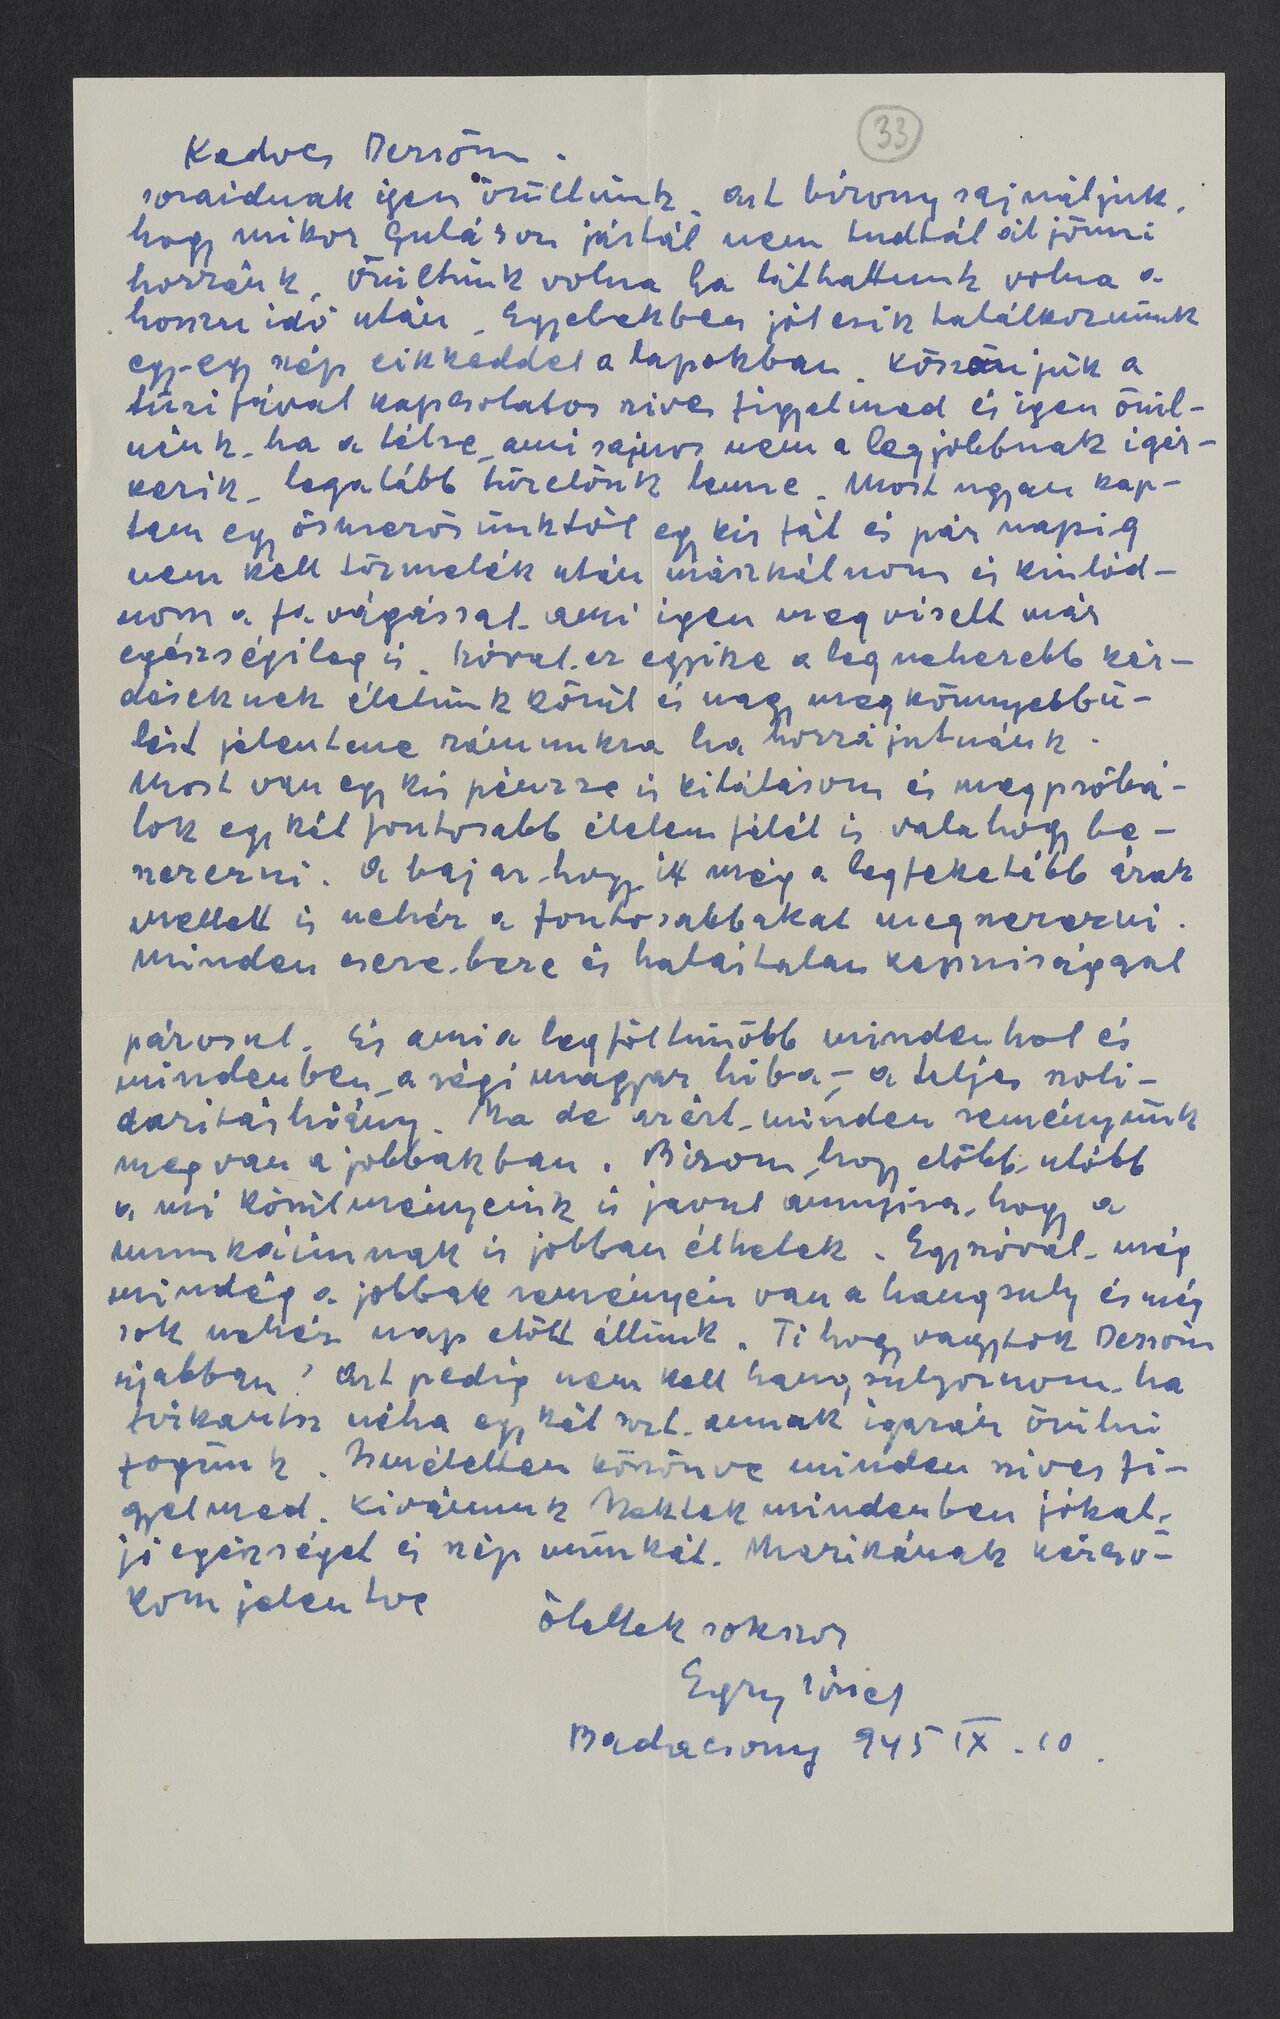 33
Kedves Dezsőm.
soraidnak igen örültünk, azt bizony sajnáljuk,
hogy mikor Gulácson jártál nem tudtál át jönni
hozzánk, örültünk volna ha láthattunk volna a
hosszu idő után. Egyebekben jól esik találkoznunk
egy-egy szép cikkeddel a lapokban. Köszönjük a
tüzifával kapcsolatos szives figyelmed és igen örül-
nénk, ha a télre, ami sajnos nem a legjobbnak igér-
kezik, legalább tüzelőnk lenne. Most ugyan kap-
tam egy ösmerősünktől egy kis fát és pár napig
nem kell törmelék után mászkálnom és kinlód-
nom a fa vágással, ami igen megviselt már
egészségileg is. Szóval ez egyike a legnehezebb kér-
déseknek életünk körül és nagy megkönnyebbü-
lést jelentene számunkra ha hozzá jutnánk.
Most van egy kis pénzre is kilátásom és megpróbá-
lok egy két fontosabb élelem félét is valahogy be-
szerezni. A baj az, hogy itt még a legfeketébb árak
mellett is nehéz a fontosabbakat megszerezni.
Minden csere-bere és határtalan kapzsisággal
párosul. És ami a legföltünőbb mindenhol és
mindenben, a régi magyar hiba, – a teljes szoli-
daritás hiány. Na de azért minden reményünk
meg van a jobbakban. Bizom, hogy előbb, utóbb
a mi körülményeink is javul annyira, hogy a
munkáimnak is jobban élhetek. Egyszóval, még
mindég a jobbak reményén van a hangsuly és még
sok nehéz nap előtt állunk. Ti hogy vagytok Dezsőm
ujabban? Azt pedig nem kell hangsulyoznom, ha
firkantsz néha egy két szót, annak igazán örülni
fogunk. Ismételten köszönve minden szives fi-
gyelmed, kivánunk Nektek mindenben jókat,
jó egészséget és szép munkát. Marikának kézcsó-
kom jelentve
ölellek sokszor
Egry József
Badacsony 945 IX. 10.